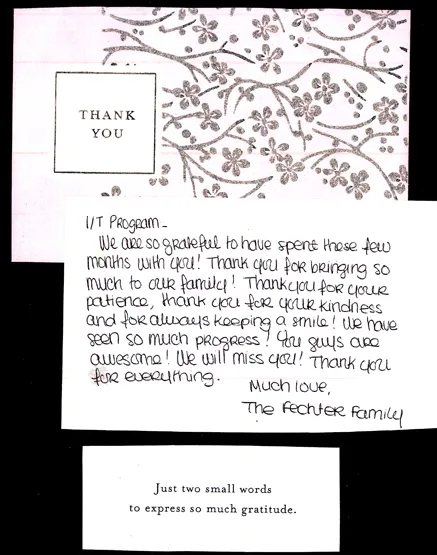 THANK
YOU
I/T Program-
We are so grateful to have spent these few
months with you! Thank you for bringing so
much to our family! Thank you for your
patience, thank you for your kindness
and for always keeping a smile! We have
seen so much progress! You guys are
awesome! We will miss you! Thank you
for everything.
Much love,
The Fechter Family
Just two small words
to express so much gratitude.